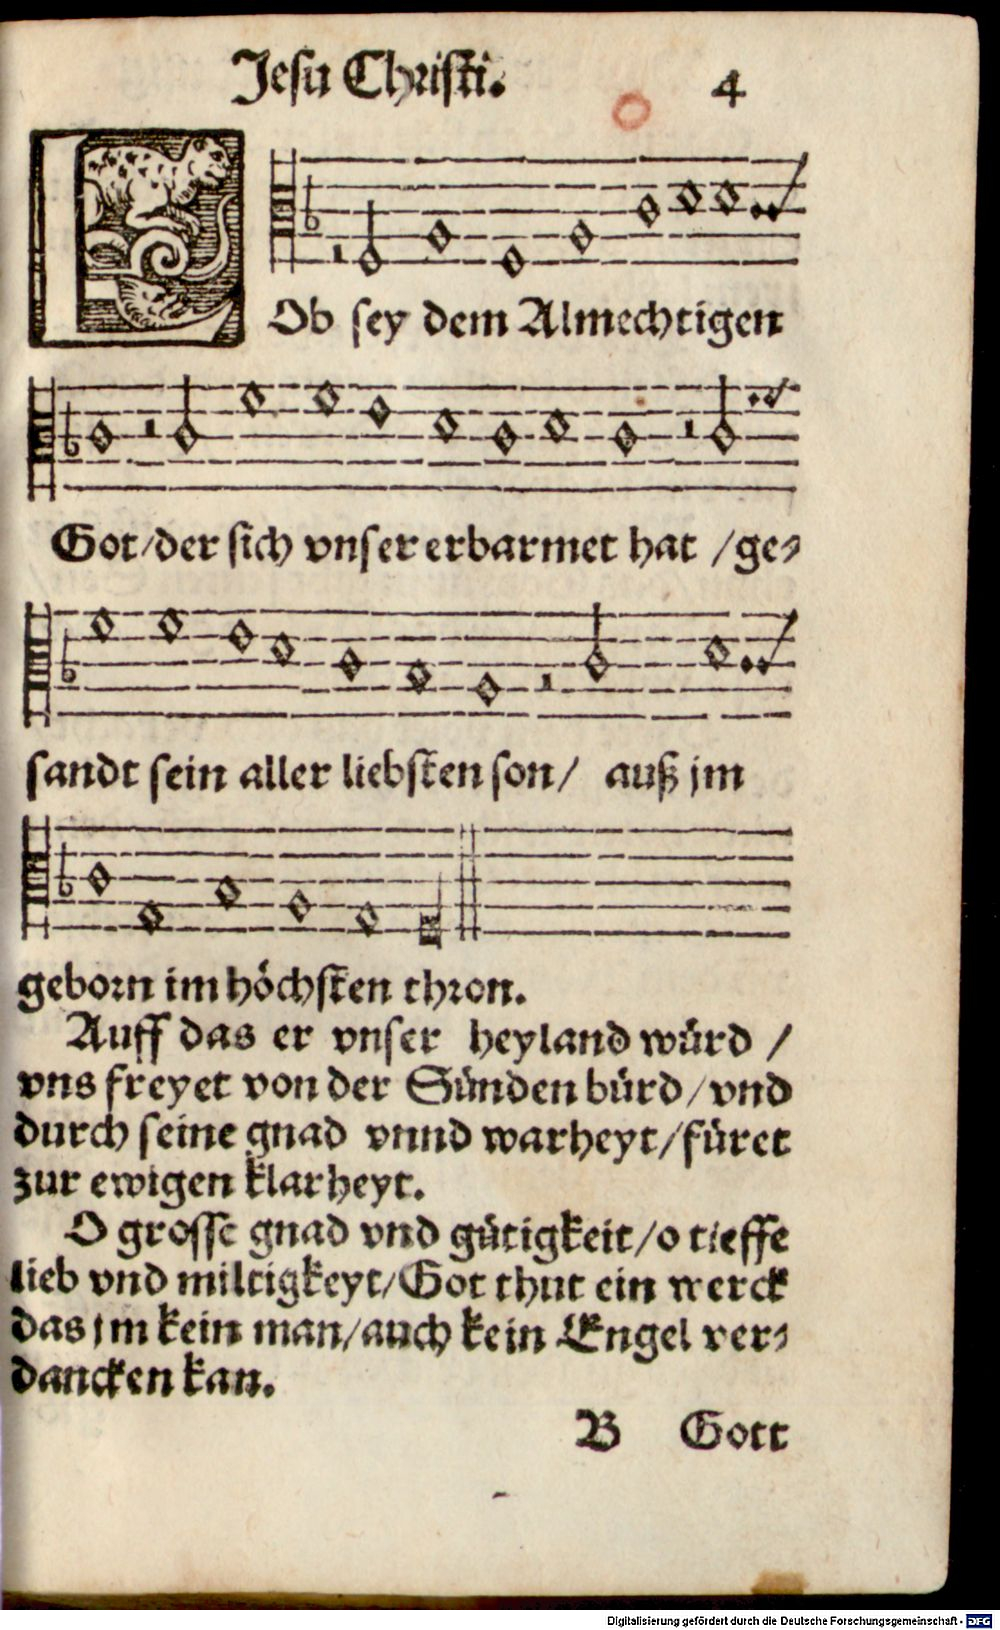 Jesu Christi. 4
LOb sey dem Almechtigen
Got/der sich vnser erbarmet hat /ge⸗
sandt sein aller liebsten son/ auß jm
geborn im höchsten thron.
Auff das er vnser heyland würd /
vns freyet von der Sünden bürd/vnd
durch seine gnad vnnd warheyt/füret
zur ewigen klarheyt.
O grosse gnad vnd gütigkeit/o tieffe
lieb vnd miltigkeyt/Got thut ein werck
das jm kein man/auch kein Engel ver⸗
dancken kan.
B Gott
Digitalisierung gefördert durch die Deutsche Forschungsgemeinschaft - DFG